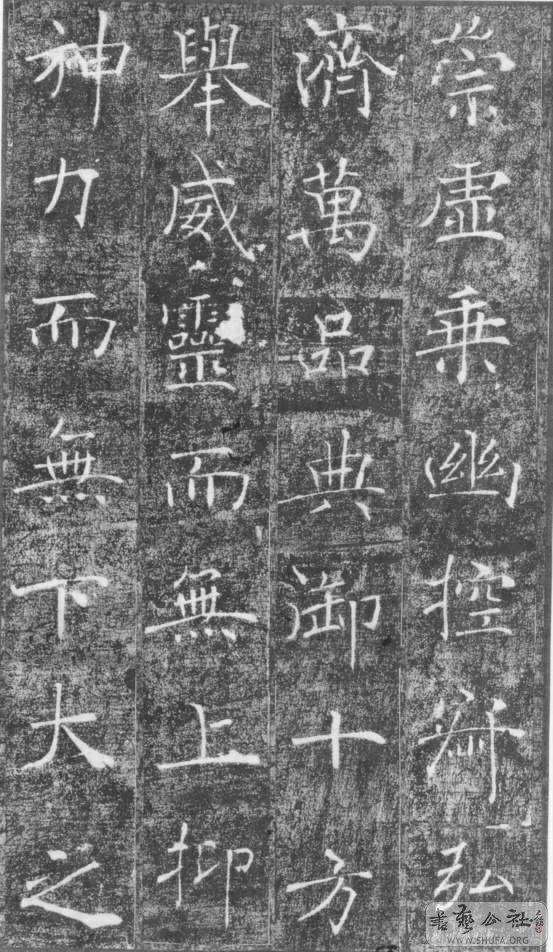 崇虛乘幽控寂弘
濟萬品典御十方
舉威靈而無上抑
神力而無下大之
書藝公社
WWW.SHUFA.ORG